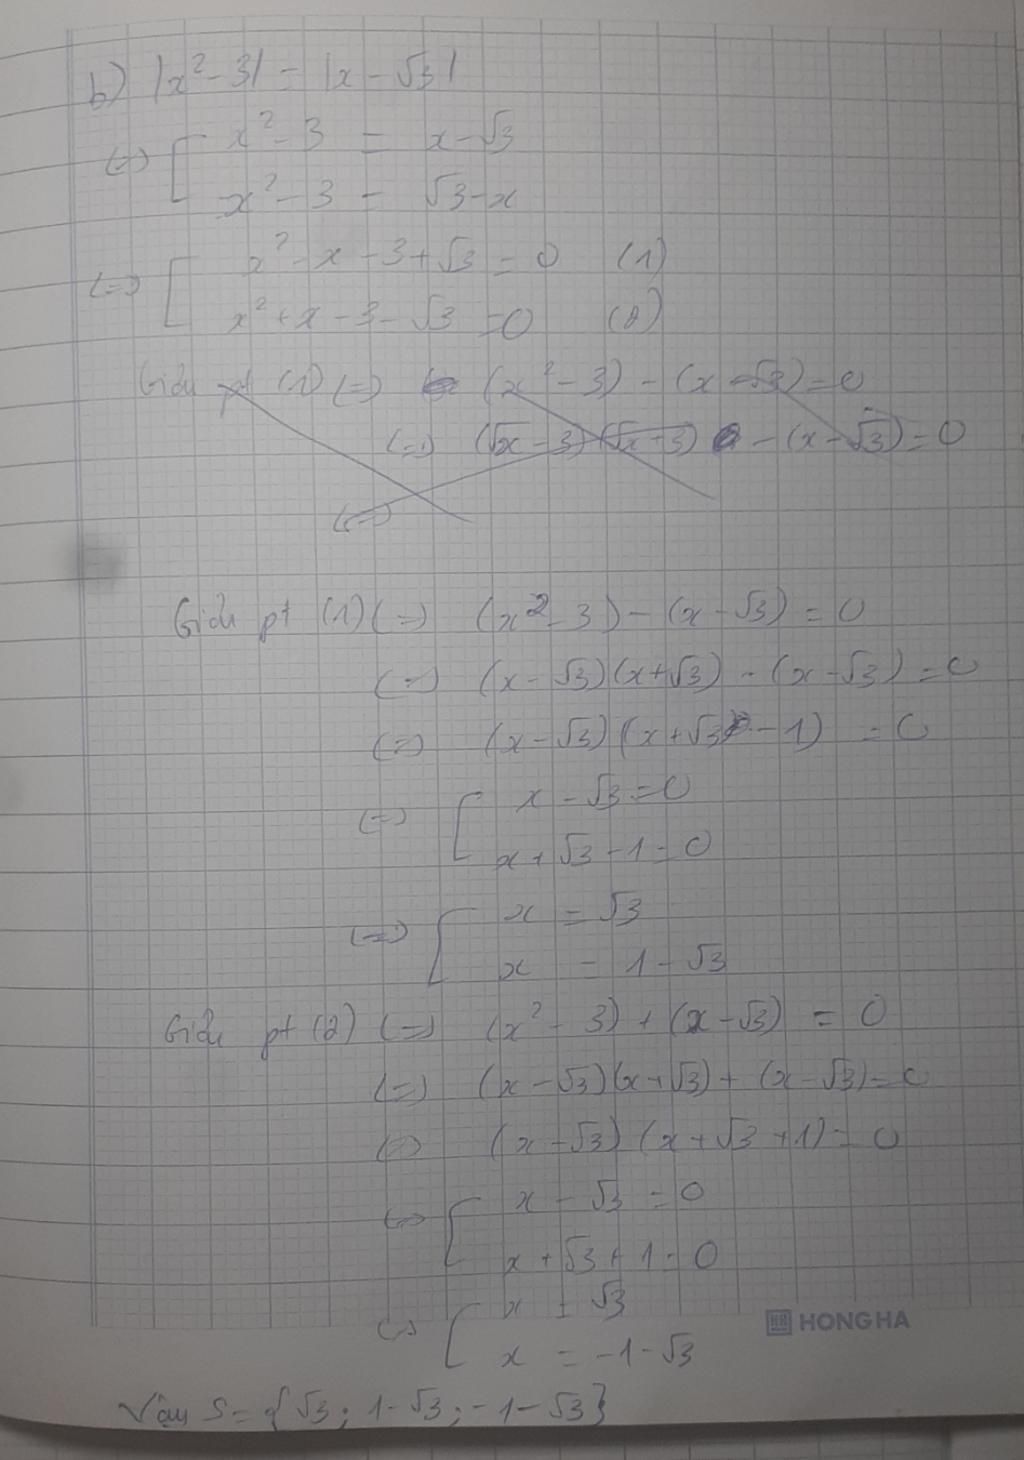 b) |x² - 3| = |x - √3|
(=) [ x² - 3 = x - √3
x² - 3 = √3 - x
(=) [ x² - x - 3 + √3 = 0 (1)
x² + x - 3 - √3 = 0 (2)
Giải pt (1) (=) (x² - 3) - (x - √3) = 0
(=) (√x - 3)(√x + 3) - (x - √3) = 0
(=)
Giải pt (1) (=) (x² - 3) - (x - √3) = 0
(=) (x - √3)(x + √3) - (x - √3) = 0
(=) (x - √3)(x + √3 - 1) = 0
(=) [ x - √3 = 0
x + √3 - 1 = 0
(=) [ x = √3
x = 1 - √3
Giải pt (2) (=) (x² - 3) + (x - √3) = 0
(=) (x - √3)(x + √3) + (x - √3) = 0
(=) (x - √3)(x + √3 + 1) = 0
(=) [ x - √3 = 0
x + √3 + 1 = 0
(=) [ x = √3
x = -1 - √3
HONG HA
Vậy S = {√3; 1 - √3; -1 - √3}